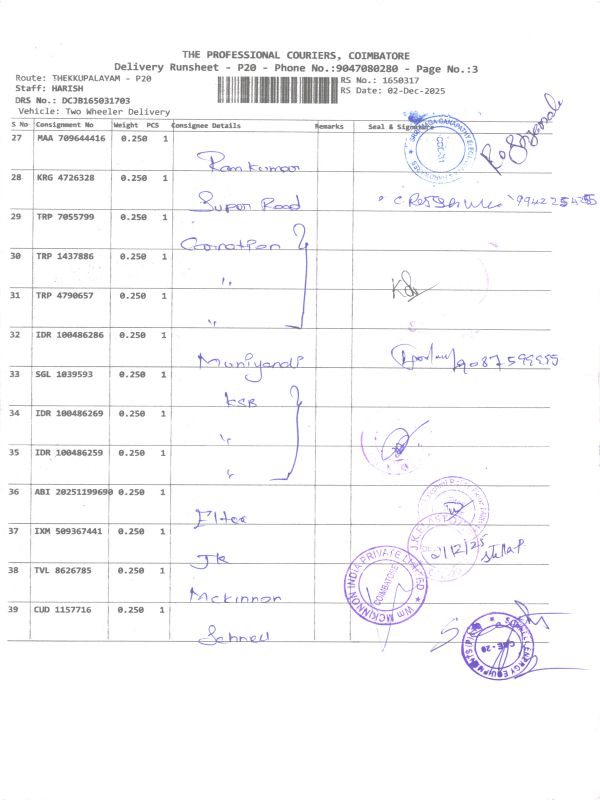 THE PROFESSIONAL COURIERS, COIMBATORE
Delivery Runsheet - P20 - Phone No.:9047080280 - Page No.:3
Route: THEKKUPALAYAM - P20
RS No.: 1650317
Staff: HARISH
RS Date: 02-Dec-2025
DRS No.: DCJB165031703
Vehicle: Two Wheeler Delivery
S No Consignment No Weight PCS Consignee Details Remarks Seal & Signature
27 MAA 709644416 0.250 1
Ramkumar
28 KRG 4726328 0.250 1
Super Road
29 TRP 7055799 0.250 1
30 TRP 1437886 0.250 1
"
31 TRP 4790657 0.250 1
"
32 IDR 100486286 0.250 1
Muniyandi
33 SGL 1039593 0.250 1
KSB
34 IDR 100486269 0.250 1
"
35 IDR 100486259 0.250 1
"
36 ABI 20251199690 0.250 1
37 IXM 509367441 0.250 1
Jk
2/12/25
38 TVL 8626785 0.250 1
Mckinnon
Wm MCKINNON INDIA PRIVATE LIMITED
COIMBATORE
39 CUD 1157716 0.250 1
Schnell
CBE-20